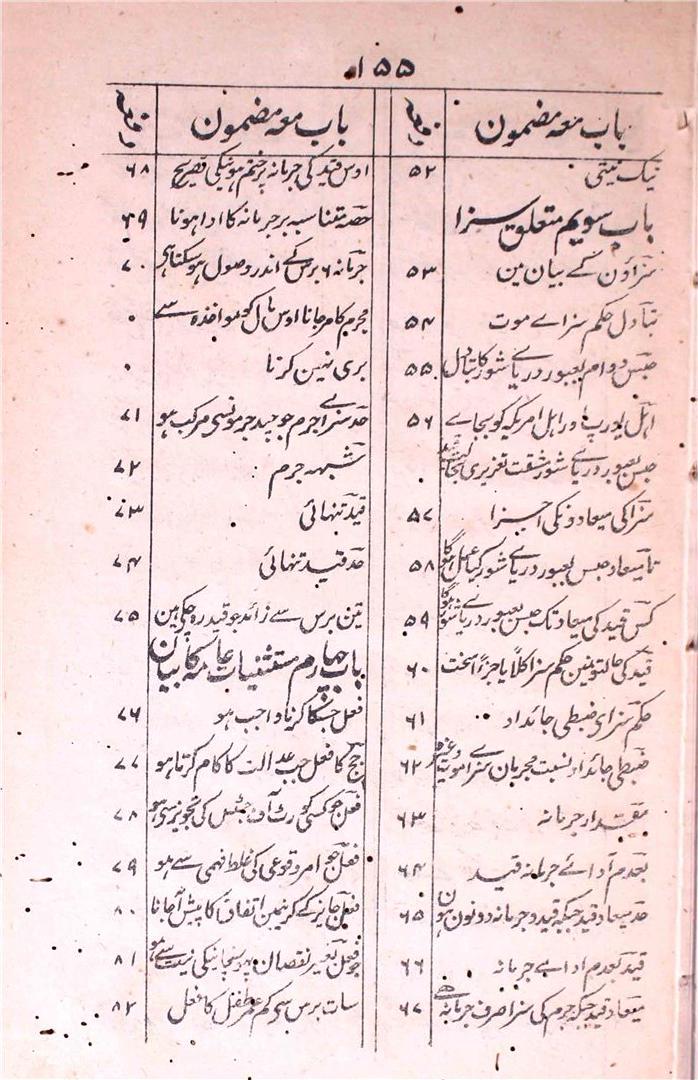 ۱۵۵
باب معہ مضمون دفعہ
نیک نیتی ۵۲
باب سویم متعلق سزا
سزاؤن کے بیان مین ۵۳
تبادل حکم سزاے موت ۵۴
حبس دوام بعبور دریاے شور کا تبادل ۵۵
اہل یورپ اور اہل امریکہ کو بجاے ۵۶
حبس بعبور دریاے شور مشقت تعزیری
سزا کی میعادونکی اجزا ۵۷
تا میعاد حبس بعبور دریاے شور کیا عمل ہوگا ۵۸
کس قید کی میعاد تک حبس بعبور دریاے شور ہوگا ۵۹
قید کی حالتونمین حکم سزا کلاً یا جزءً سخت ۶۰
حکم سزای ضبطی جائداد ۶۱
ضبطی جائداد نسبت مجرمان سزاے موت وغیرہ ۶۲
مقدار جرمانہ ۶۳
بعدم اداے جرمانہ قید ۶۴
حد میعاد قید جبکہ قید و جرمانہ دونون ہون ۶۵
قید بعدم اداے جرمانہ ۶۶
میعاد قید جبکہ جرم کی سزا صرف جرمانہ ہے ۶۷
باب معہ مضمون دفعہ
اوس قید کی جرمانہ پر ختم ہونیکی تصریح ۶۸
حصہ متناسبہ پر جرمانہ کا ادا ہونا ۶۹
جرمانہ ۶ برس کے اندر وصول ہو سکتا ہی ۷۰
مجرم کا مر جانا اوس مال کو مواخذہ سے ۰
بری نہین کرتا ۰
حد سزاے جرم جو چند جرمونسی مرکب ہو ۷۱
شبہہ جرم ۷۲
قید تنہائی ۷۳
حد قید تنہائی ۷۴
تین برس سے زائد جو قید رہ چکی ہین ۷۵
باب چہارم مستثنیات عامہ کا بیان
فعل جسکا کرنا واجب ہو ۷۶
جج کا فعل جب عدالت کا کام کرتا ہو ۷۷
فعل جو کسی کورٹ آف جسٹس کی تجویز سی ہو ۷۸
فعل جو امر وقوعی کی غلط فہمی سے ہو ۷۹
فعل جایز کے کرنیمین اتفاق کا پیش آجانا ۸۰
جو فعل بغیر نقصان پہونچانیکی نیت سے ہو ۸۱
سات برس سی کم عمر طفل کا فعل ۸۲